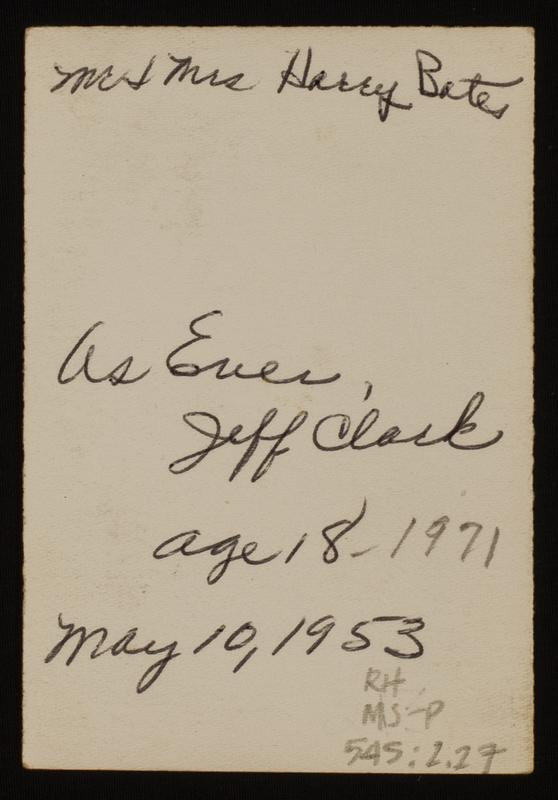 Mr & Mrs Harry Bates
As Ever,
Jeff Clark
age 18 - 1971
May 10, 1953
RH
MS-P
545:2.27